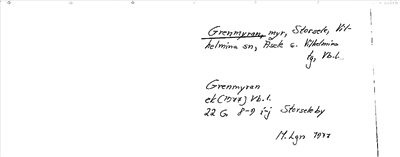 Grenmyran, myr, Storsele, Vil-
helmina sn, Åsele o. Vilhelmina
tg, Vb.l.
Grenmyran
ek (1977) Vb.l.
22 G 8-9 i-j Storseleby
M. Lgn 1977